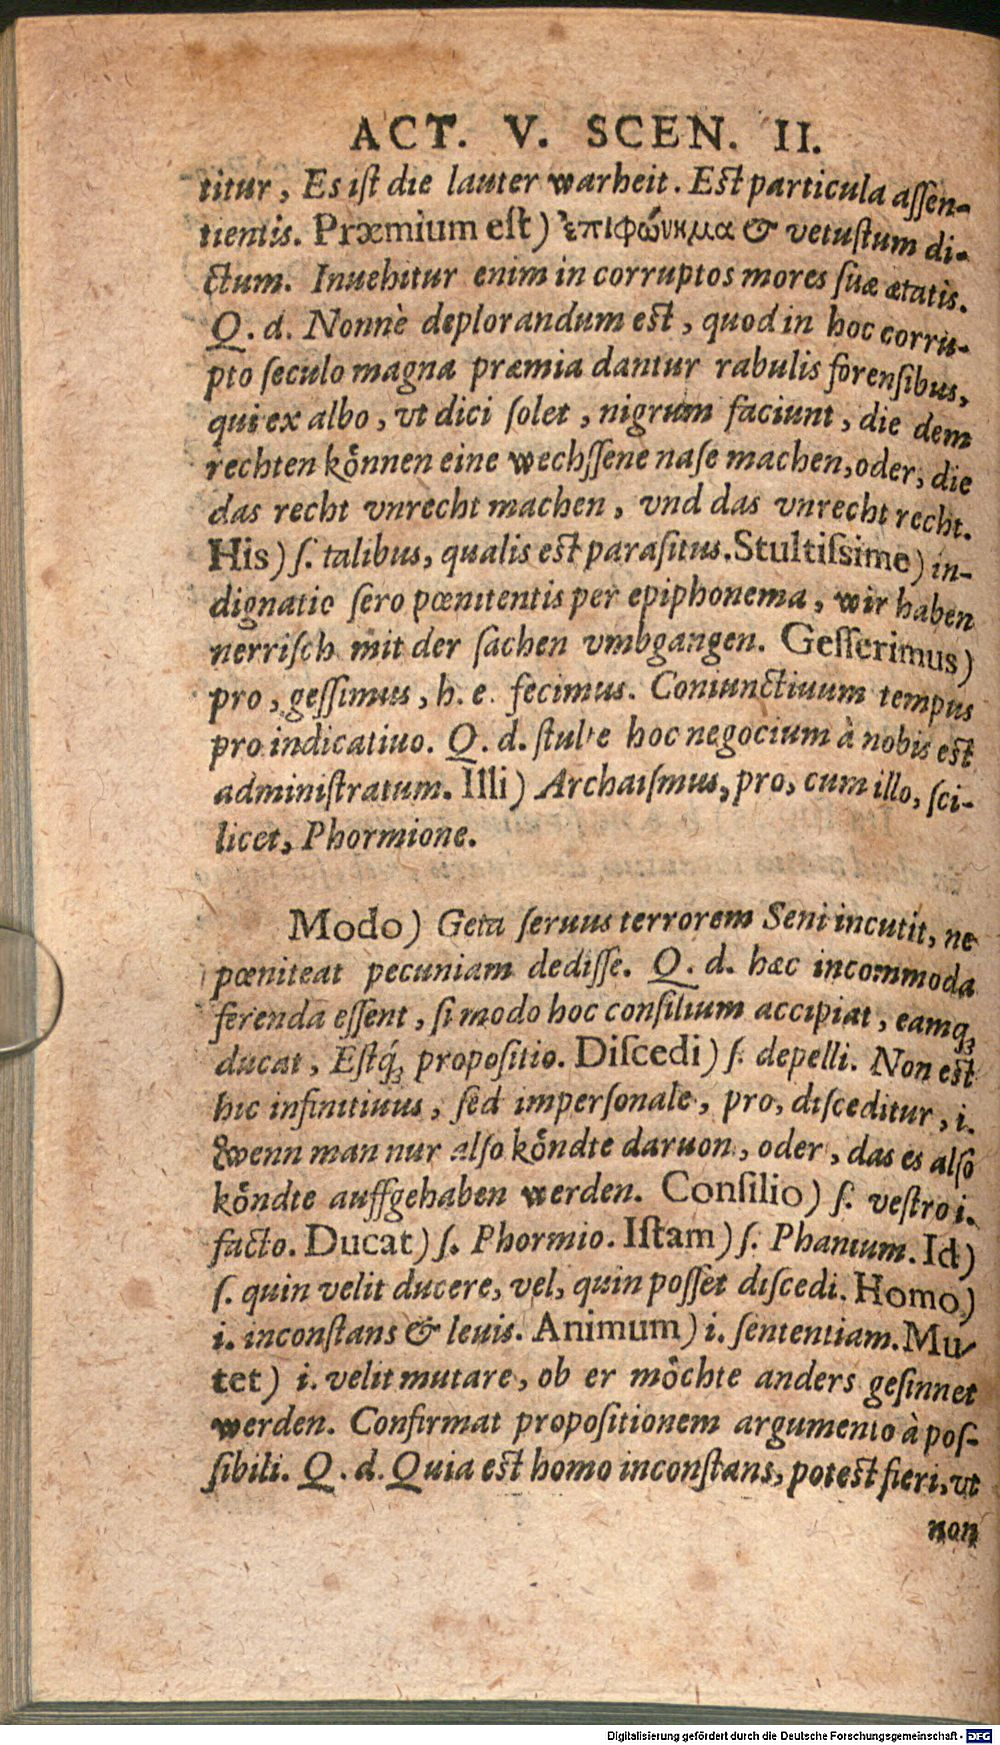 ACT. V. SCEN. II.
titur, Es iſt die lauter warheit. Eſt particula aſſen-
tientis. Præmium eſt) ἐπιφώνημα & vetuſtum di-
ctum. Inuehitur enim in corruptos mores ſuæ ætatis.
Q. d. Nonnè deplorandum eſt, quod in hoc corru-
pto ſeculo magna præmia dantur rabulis forenſibus,
qui ex albo, vt dici ſolet, nigrum faciunt, die dem
rechten koͤnnen eine wechſſene naſe machen, oder, die
das recht vnrecht machen, vnd das vnrecht recht.
His) ſ. talibus, qualis eſt paraſitus. Stultiſsime) in-
dignatio ſero pœnitentis per epiphonema, wir haben
nerriſch mit der ſachen vmbgangen. Geſſerimus)
pro, geſſimus, h. e. fecimus. Coniunctiuum tempus
pro indicatiuo. Q. d. ſtulte hoc negocium à nobis eſt
adminiſtratum. Illi) Archaiſmus, pro, cum illo, ſci-
licet, Phormione.
Modo) Geta ſeruus terrorem Seni incutit, ne
pœniteat pecuniam dediſſe. Q. d. hæc incommoda
ferenda eſſent, ſi modo hoc conſilium accipiat, eamq́;
ducat, Eſtq́; propoſitio. Diſcedi) ſ. depelli. Non eſt
hic infinitiuus, ſed imperſonale, pro, diſceditur, i.
Wenn man nur alſo koͤndte daruon, oder, das es alſo
koͤndte auffgehaben werden. Conſilio) ſ. veſtro i.
facto. Ducat) ſ. Phormio. Iſtam) ſ. Phanium. Id)
ſ. quin velit ducere, vel, quin poſſet diſcedi. Homo)
i. inconſtans & leuis. Animum) i. ſententiam. Mu-
tet) i. velit mutare, ob er moͤchte anders geſinnet
werden. Confirmat propoſitionem argumento à poſ-
ſibili. Q. d. Quia eſt homo inconſtans, poteſt fieri, vt
non
Digitalisierung gefördert durch die Deutsche Forschungsgemeinschaft - DFG